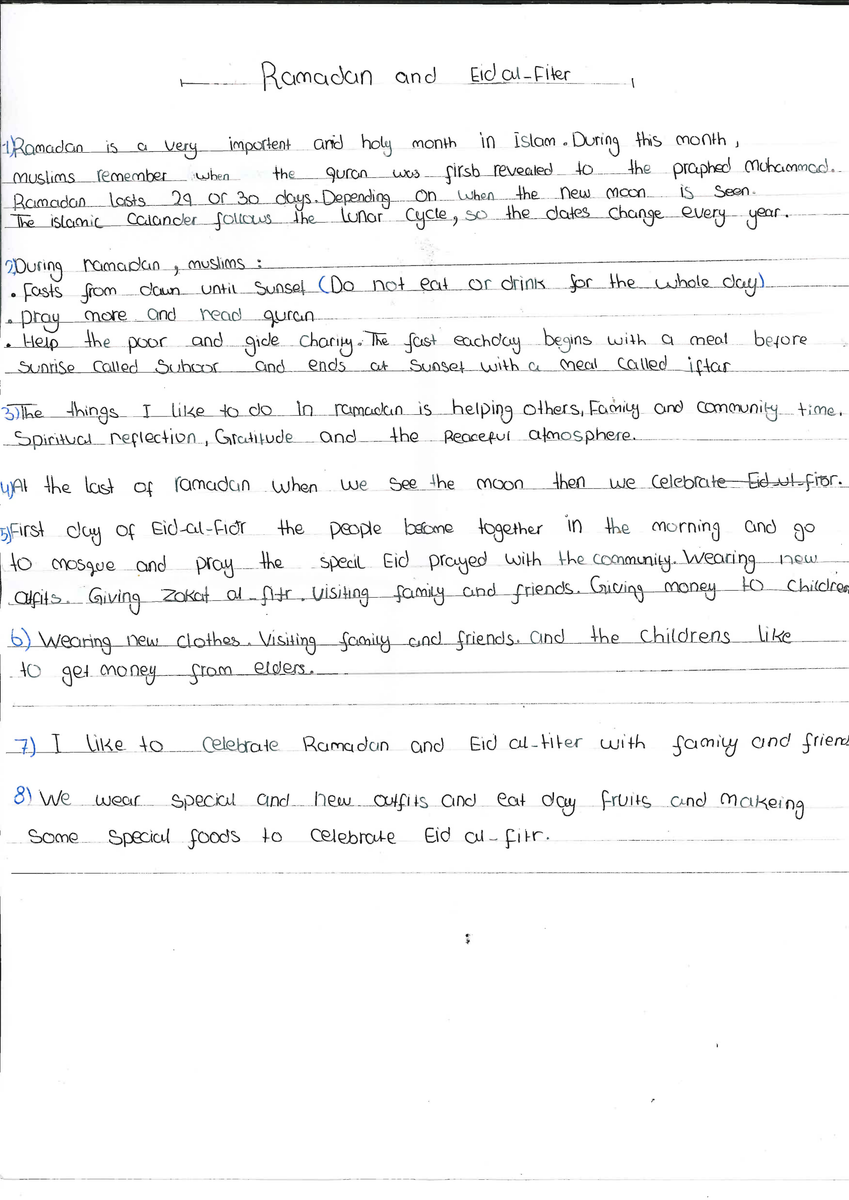 Ramadan and Eid al-Fiter
1) Ramadan is a very importent and holy month in Islam. During this month,
muslims remember when the quran was firsb revealed to the praphed muhammad.
Ramadan lasts 29 or 30 days. Depending on when the new moon is seen.
The islamic Calander follows the lunar cycle, so the dates change every year.
2) During ramadan, muslims :
• Fasts from dawn until sunset (Do not eat or drink for the whole day)
• pray more and read quran
• Help the poor and gide charity. The fast eachday begins with a meal before
sunrise called Suhoor and ends at sunset with a meal called iftar
3) The things I like to do in ramadan is helping others, Family and community time.
Spiritual reflection, Gratitude and the peaceful atmosphere.
4) At the last of ramadan when we see the moon then we celebrate Eid-ul-fitor.
5) First day of Eid-al-Fidr the people become together in the morning and go
to mosque and pray the specil Eid prayed with the community. Wearing new
outfits. Giving Zakat al-fitr. visiting family and friends. Giving money to children
6) Wearing new clothes. Visiting family and friends. and the childrens like
to get money from elders.
7) I like to celebrate Ramadan and Eid al-fiter with family and friend
8) We wear special and new outfits and eat day fruits and makeing
some special foods to celebrate Eid al-fitr.